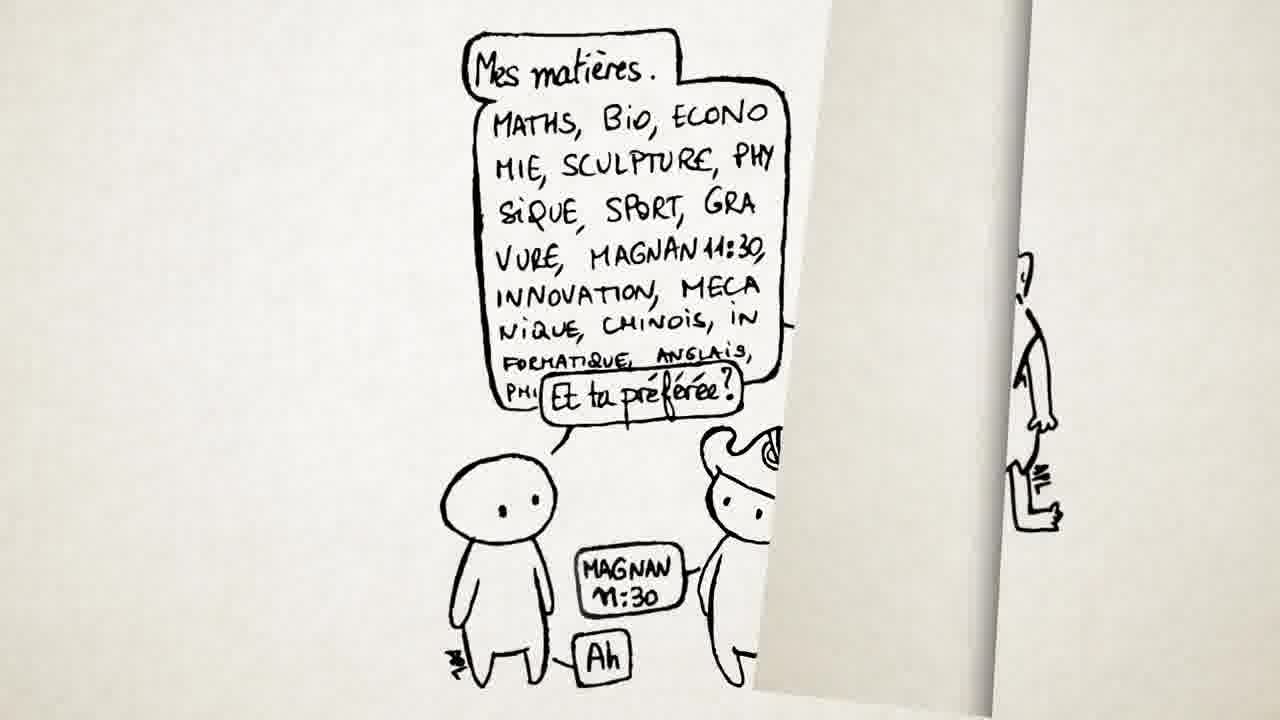 Mes matières.
MATHS, BiO, ECONO
MIE, SCULPTURE, PHY
SiQUE, SPORT, GRA
VURE, MAGNAN 11:30,
INNOVATION, MECA
NiQUE, CHINOiS, iN
FORMATiQUE, ANGLAiS,
PHi
Et ta préférée?
MAGNAN
11:30
Ah